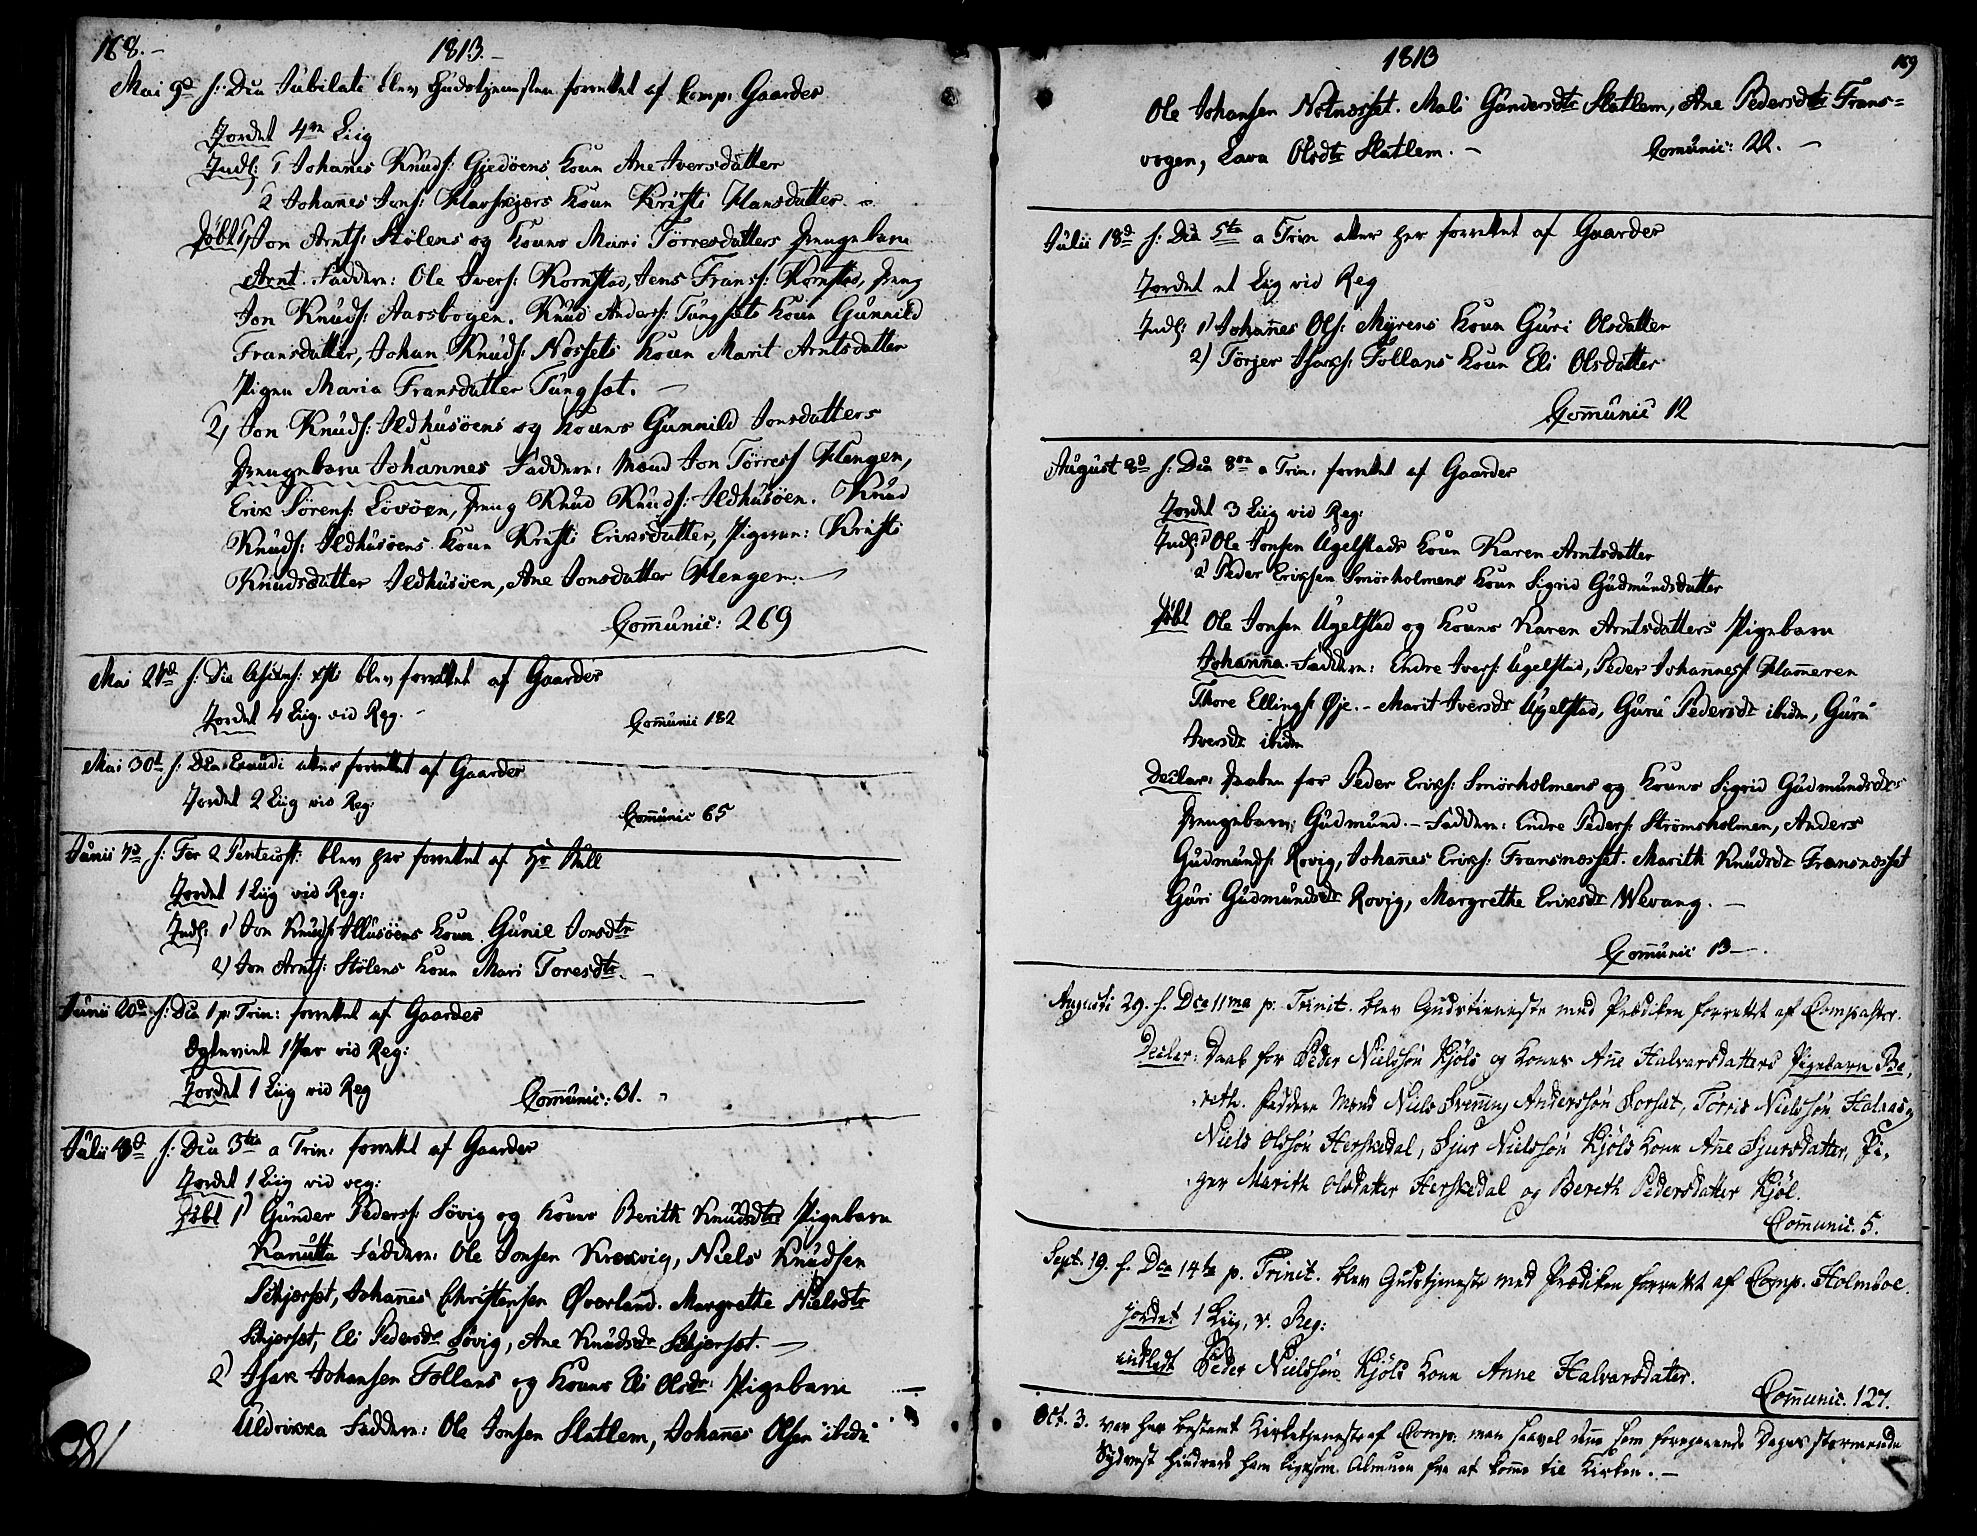 168.-
1813.-
Mai 9d f: Dca Jubilate blev Gudstjenesten forrettet af Comp: Gaarder
Jordet 4re Liig
Indl: 1 Johañes Knuds: Gjedöens Kone Ane Iversdatter
2 Johañes Jons: Havskjærs Kone Kristi Hansdatter -
Døbt 1, Jon Arnts: Stölens og Kones Mari Törresdatters Drengebarn
Arnt. Faddere: Ole Ivers: Kornstad, Jens Frans: Kornstad, Dreng
Jon Knuds: Aarsbogen. Knud Anders: Tungsets Kone Gunnild
Fransdatter, Johan Knuds: Nossets Kone Marit Arntsdatter
Pigen Maria Fransdatter Tungset. -
2, Jon Knuds: Ildhusöens og Kones Gunnild Jonsdatters
Drengebarn Johannes Faddere: Mænd Jon Törress Hengen,
Erik Sörens: Lövöen, Dreng Knud Knuds: Ildhusöen. Knud
Knuds: Ildhusöens Kone Kristi Eriksdatter, Pigerne: Kristi
Knudsdatter Ildhusöen, Ane Jonsdatter Hengen. -
Com̃unic: 269
Mai 21d f: Die Ascens: Xsti blev forrettet af Gaarder
Jordet 4 Liig vid Reg. -
Com̃unic 182
Mai 30d f: Dca Exaudi atter forrettet af Gaarder
Jordet 2 Liig vid Reg:
Com̃unic 65
Junii 7d f: Fer 2 Pentecost: blev her forrettet af Hr Stub
Jordet 1 Liig vid Reg:
Indl: 1 Jon Knuds Illusöens Kone Gunil Jonsdtr
2) Jon Arnts: Stölens Kone Mari Toresdtr. -
Junii 20d f: Dca 1 p: Trin: forrettet af Gaarder
Ægteviet 1 Par vid Reg:
Jordet 1 Liig vid Reg
Com̃unic: 31.
Julii 4d f: Dca 3tia a Trin: forrettet af Gaarder
Jordet 1 Liig vid reg:
Døbt 1) Gunder Peders: Sövig og Kones Berith Knudsdtrs Pigebarn
Kanutta Faddere: Ole Jonsen Krexvig, Niels Knudsen
Skjerset, Johañes Christensen Øverland. Margrethe Nielsdtr
Skjerset, Eli Pedersdr Sövig, Ane Knudsdr Skjerset. -
2) Isak Johansen Follans og Kones Eli Olsdr: Pigebarn
Uldrikka Faddere: Ole Jonsen Slatlem, Johañes Olsen ibid:
1813
169
Ole Johansen Notnæsset. Mali Gundersdtr Slatlem, Ane Pedersdtr Frans=
vogen, Lava Olsdtr Slatlem. -
Com̃unic: 22. -
Julii 18d f: Dca 5ta a Trin atter her forrettet af Gaarder
Jordet et Liig vid Reg
Indl: 1) Johañes Ols: Myrens Kone Guri Olsdatter
2) Törjer Isaks: Follans Kone Eli Olsdatter
Com̃unic 12
August 8d f: Dca 8va a Trin: forrettet af Gaarder
Jordet 3 Liig vid Reg:
Indl: 1) Ole Jonsen Ugelstads Kone Karen Arntsdatter
2 Peder Eriksen Smörholmens Kone Sigrid Gudmundsdatter
Døbt Ole Jonsen Ugelstad og Kones Karen Arntsdatters Pigebarn
Johanna. Faddere: Endre Ivers: Ugelstad, Peder Johanness: Ham̃eren
Thore Ellings: Øje. - Marit Iversdr Ugelstad, Guru Pedersdr ibidem, Guru
Iversdr ibidem
Declar: Daaben for Peder Eriks: Smörholmens og Kones Sigrid Gudmundsdrs
Drengebarn; Gudmund. - Faddere: Endre Peders: Strömsholmen, Anders
Gudmunds: Rovig, Johañes Eriks: Fransnæsset. Marith Knudsdr Fransnæsset
Guri Gudmundsdr Rovig, Margrethe Eriksdr Wevang. -
Com̃unic 13 -.
Augusti 29. f. Dca 11ma p. Trinit. blev Gudstieneste med Prædiken forrettet af Comp:
Declar: Daab for Peder Nielssøn Kjöls og Kones Añe Halvarsdatters Pigebarn Be,
reth. Faddere Mænd Niels Svening Anderssøn Sorset, Törris Nielssøn Halaas,
Niels Olssøn Herskedal, Sjur Nielssøn Kjöls Kone Añe Sjursdatter, Pi,
ger Marith Olsdatter Herskedal og Bereth Pedersdatter Kjöl.
Com̃unic. 5.
Sept. 19. f. Dca 14ta p. Trinit. blev Gudstjeneste med Prædiken forrettet af Comp. Holmboe.
Jordet 1 Liig, v. Reg:
indledt Peder Nielssøns Kjöls Kone Anne Halvarsdater.
Com̃unic. 127.
Oct. 3. var her bestemt Kirketjeneste af Comp: men saavel denne som foregaaende Dages stormende
Sydvest hindrede ham ligesom Almuen fra at kom̃e til Kirken. -